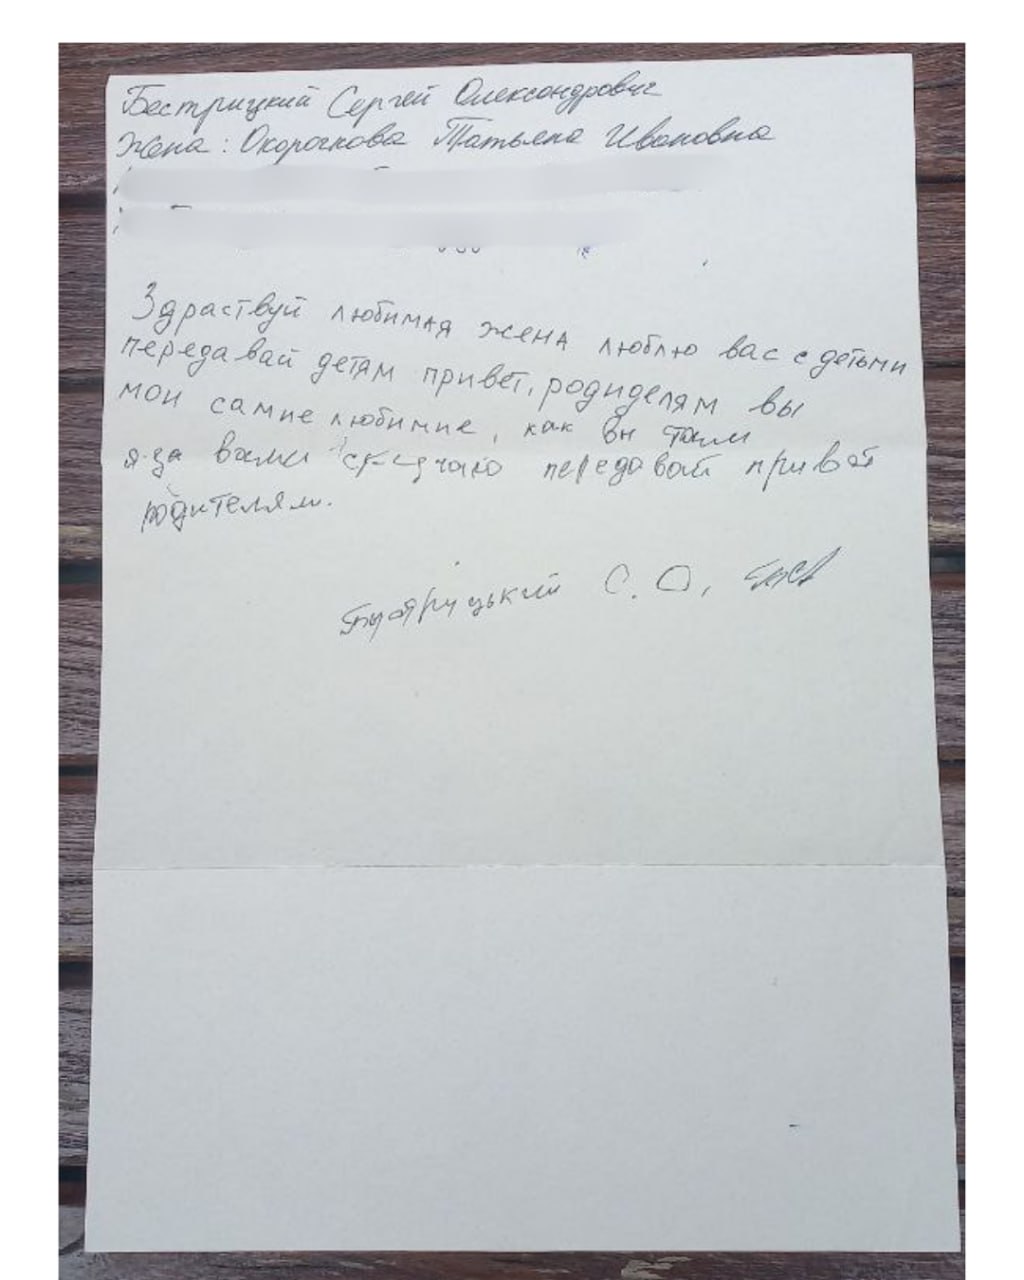 Бестрицкий Сергей Олександрович
Жена: Окорочкова Татьяна Ивановна
Здраствуй любимая жена люблю вас с детьми
передавай детям привет, родиделям вы
мои самие любимие, как вы там
я за вами скучаю передавай привет
родителям.
С. О.